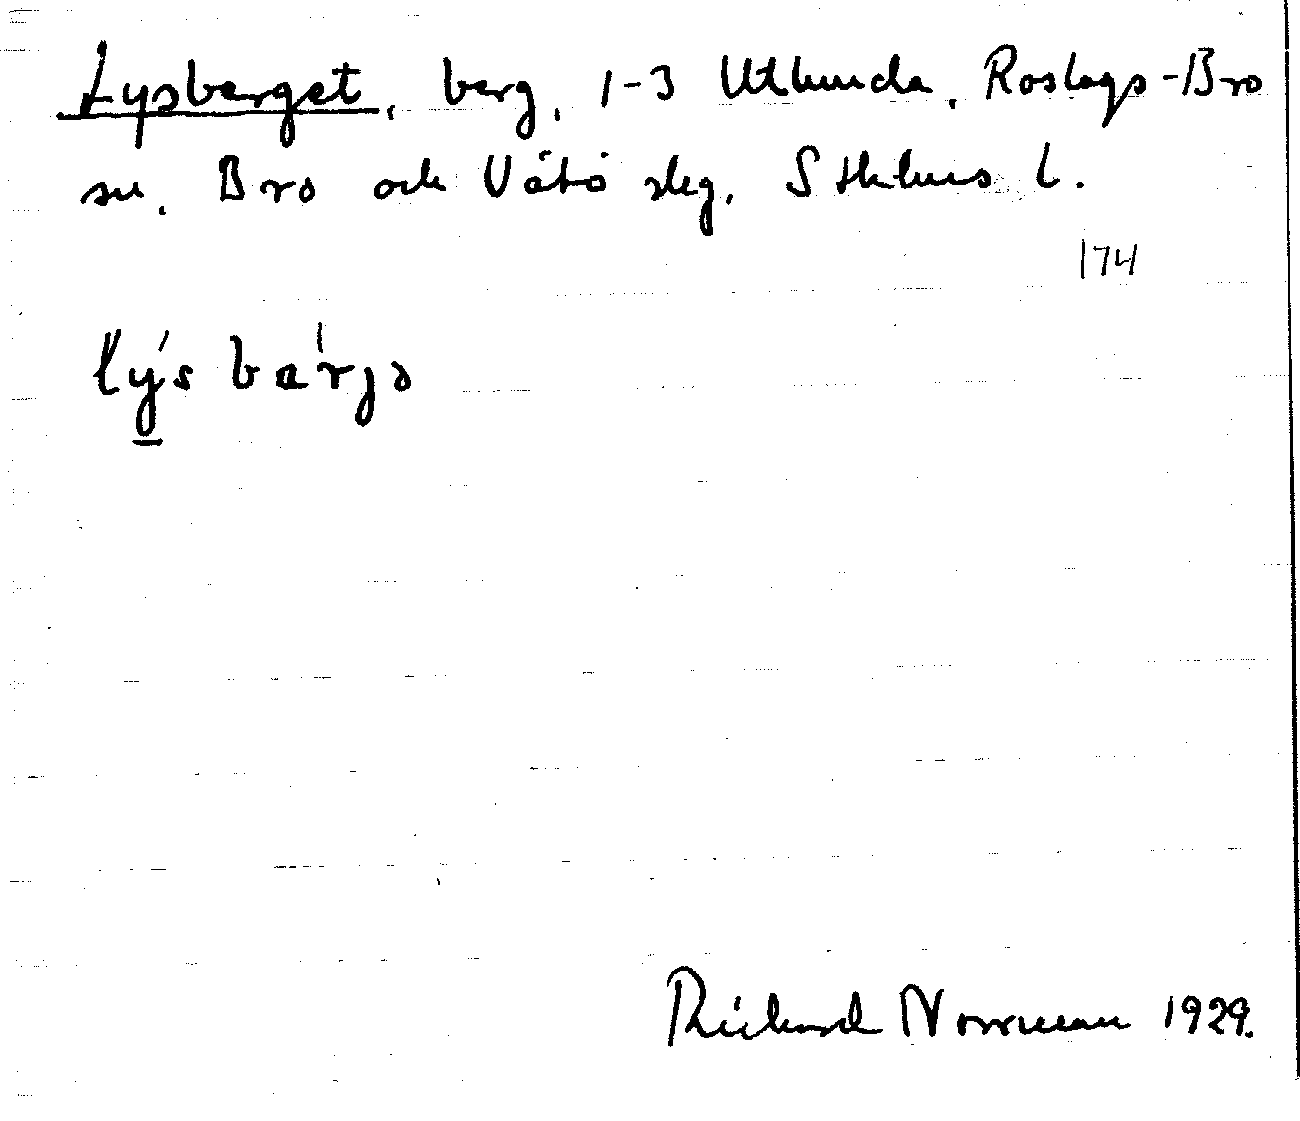 Lysberget, berg, 1-3 Utlunda, Roslags-Bro
sn. Bro och Vätö skg, Sthlms l.
174
lýs bàrjə
Richard Norrman 1929.